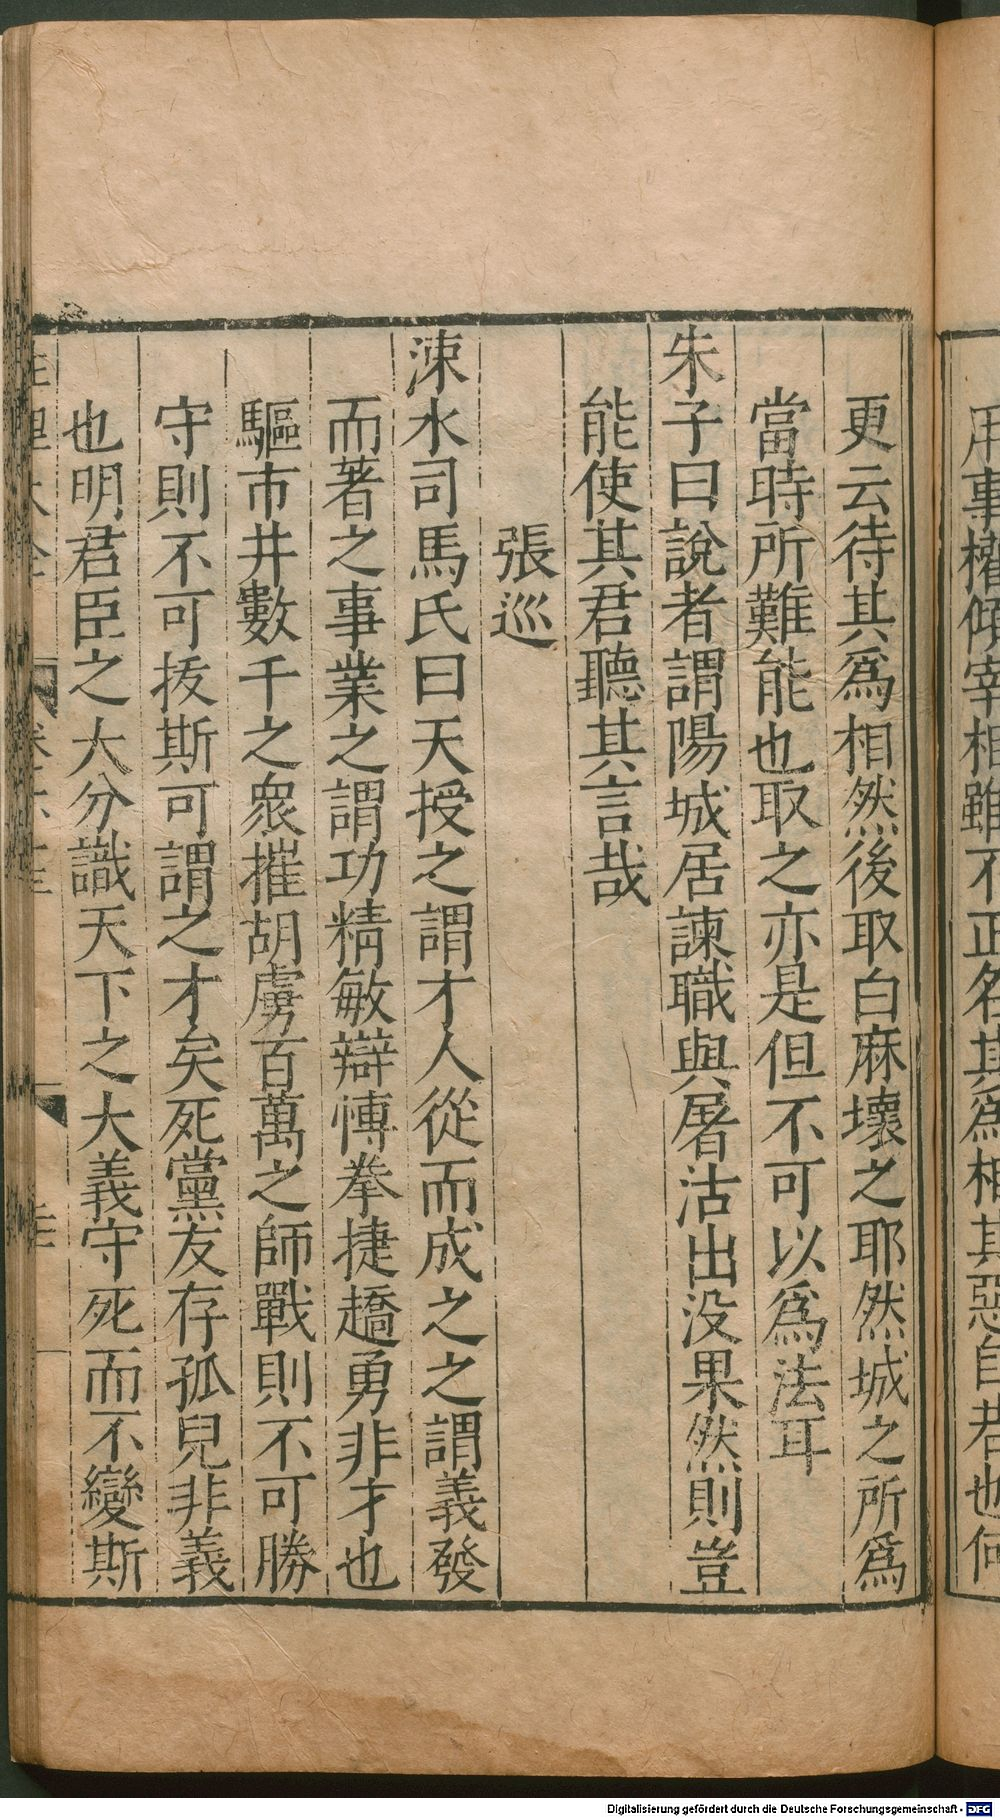 用事權傾宰相雖不正名其爲相其惡自若也何
更云待其爲相然後取白麻壞之耶然城之所爲
當時所難能也取之亦是但不可以爲法耳
朱子曰說者謂陽城居諫職與屠沽出没果然則豈
能使其君聽其言哉
張巡
涑水司馬氏曰天授之謂才人從而成之之謂義發
而著之事業之謂功精敏辯博拳捷趫勇非才也
驅市井數千之衆摧胡虜百萬之師戰則不可勝
守則不可拔斯可謂之才矣死黨友存孤兒非義
也明君臣之大分識天下之大義守死而不變斯
性理大全
Digitalisierung gefördert durch die Deutsche Forschungsgemeinschaft - DFG